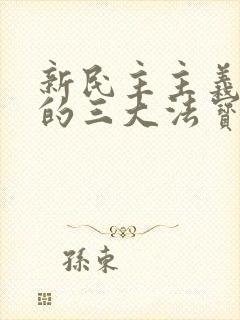 新民主主義
的三大法寶
孫東